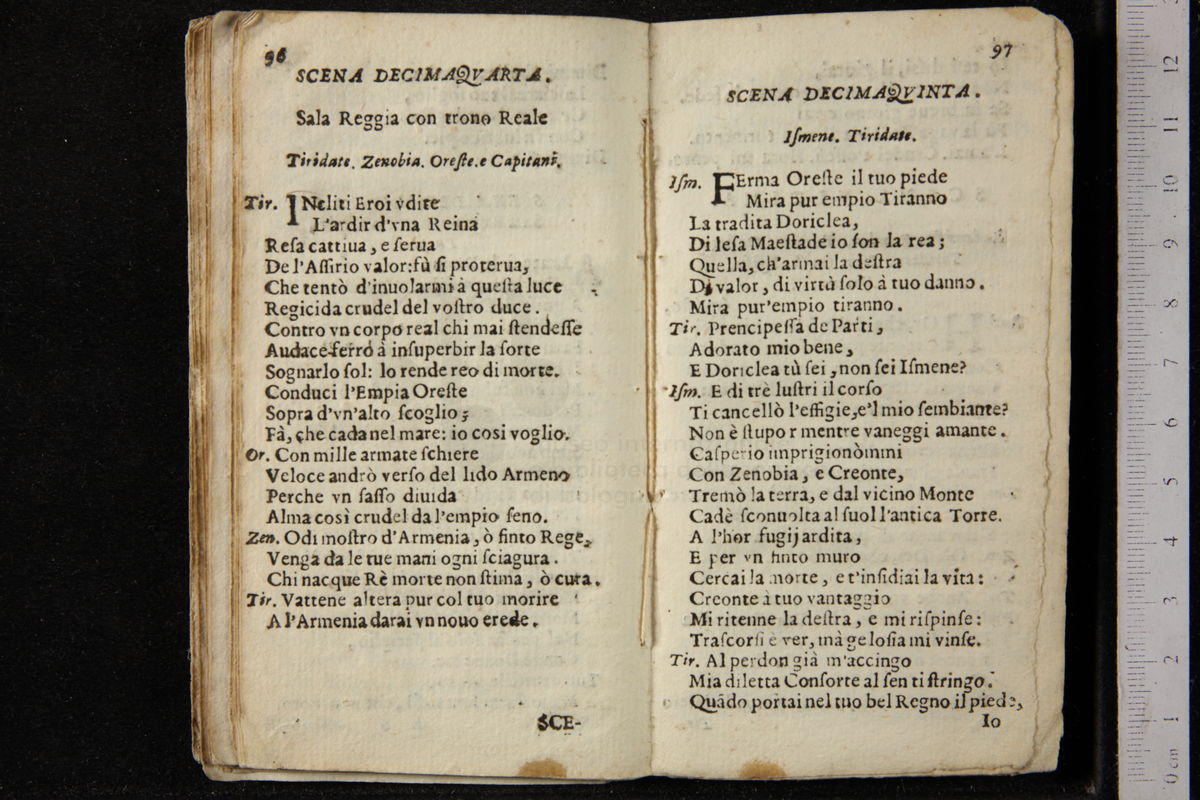 96
SCENA DECIMAQVARTA.
Sala Reggia con trono Reale
Tiridate. Zenobia. Oreſte. e Capitani.
Tir. INcliti Eroi vdite
L'ardir d'vna Reina
Reſa cattiua, e ſerua
De l'Aſſirio valor: fù ſi proterua,
Che tentò d'inuolarmi à queſta luce
Regicida crudel del voſtro duce.
Contro vn corpo real chi mai ſtendeſſe
Audace ferro à inſuperbir la ſorte
Sognarlo ſol: lo rende reo di morte.
Conduci l'Empia Oreſte
Sopra d'vn'alto ſcoglio;
Fà, che cada nel mare: io cosi voglio.
Or. Con mille armate ſchiere
Veloce andrò verſo del lido Armeno
Perche vn ſaſſo diuida
Alma così crudel da l'empio ſeno.
Zen. Odi moſtro d'Armenia, ò finto Rege,
Venga da le tue mani ogni ſciagura.
Chi nacque Rè morte non ſtima, ò cura.
Tir. Vattene altera pur col tuo morire
A l'Armenia darai vn nouo erede.
SCE-
97
SCENA DECIMAQVINTA.
Iſmene. Tiridate.
Iſm. FErma Oreſte il tuo piede
Mira pur empio Tiranno
La tradita Doriclea,
Di leſa Maeſtade io ſon la rea;
Quella, ch'armai la deſtra
Di valor, di virtù ſolo à tuo danno.
Mira pur'empio tiranno.
Tir. Prencipeſſa de Parti,
Adorato mio bene,
E Doriclea tù ſei, non ſei Iſmene?
Iſm. E di trè luſtri il corſo
Ti cancellò l'effigie, e'l mio ſembiante?
Non è ſtupor mentre vaneggi amante.
Caſperio imprigionòmmi
Con Zenobia, e Creonte,
Tremò la terra, e dal vicino Monte
Cadè ſconuolta al ſuol l'antica Torre.
A l'hor fugij ardita,
E per vn finto muro
Cercai la morte, e t'inſidiai la vita:
Creonte à tuo vantaggio
Mi ritenne la deſtra, e mi riſpinſe:
Traſcorſi è ver, mà geloſia mi vinſe.
Tir. Al perdon già m'accingo
Mia diletta Conſorte al ſen ti ſtringo.
Quãdo portai nel tuo bel Regno il piede,
Io
12
11
10
9
8
7
6
5
4
3
2
1
0 cm